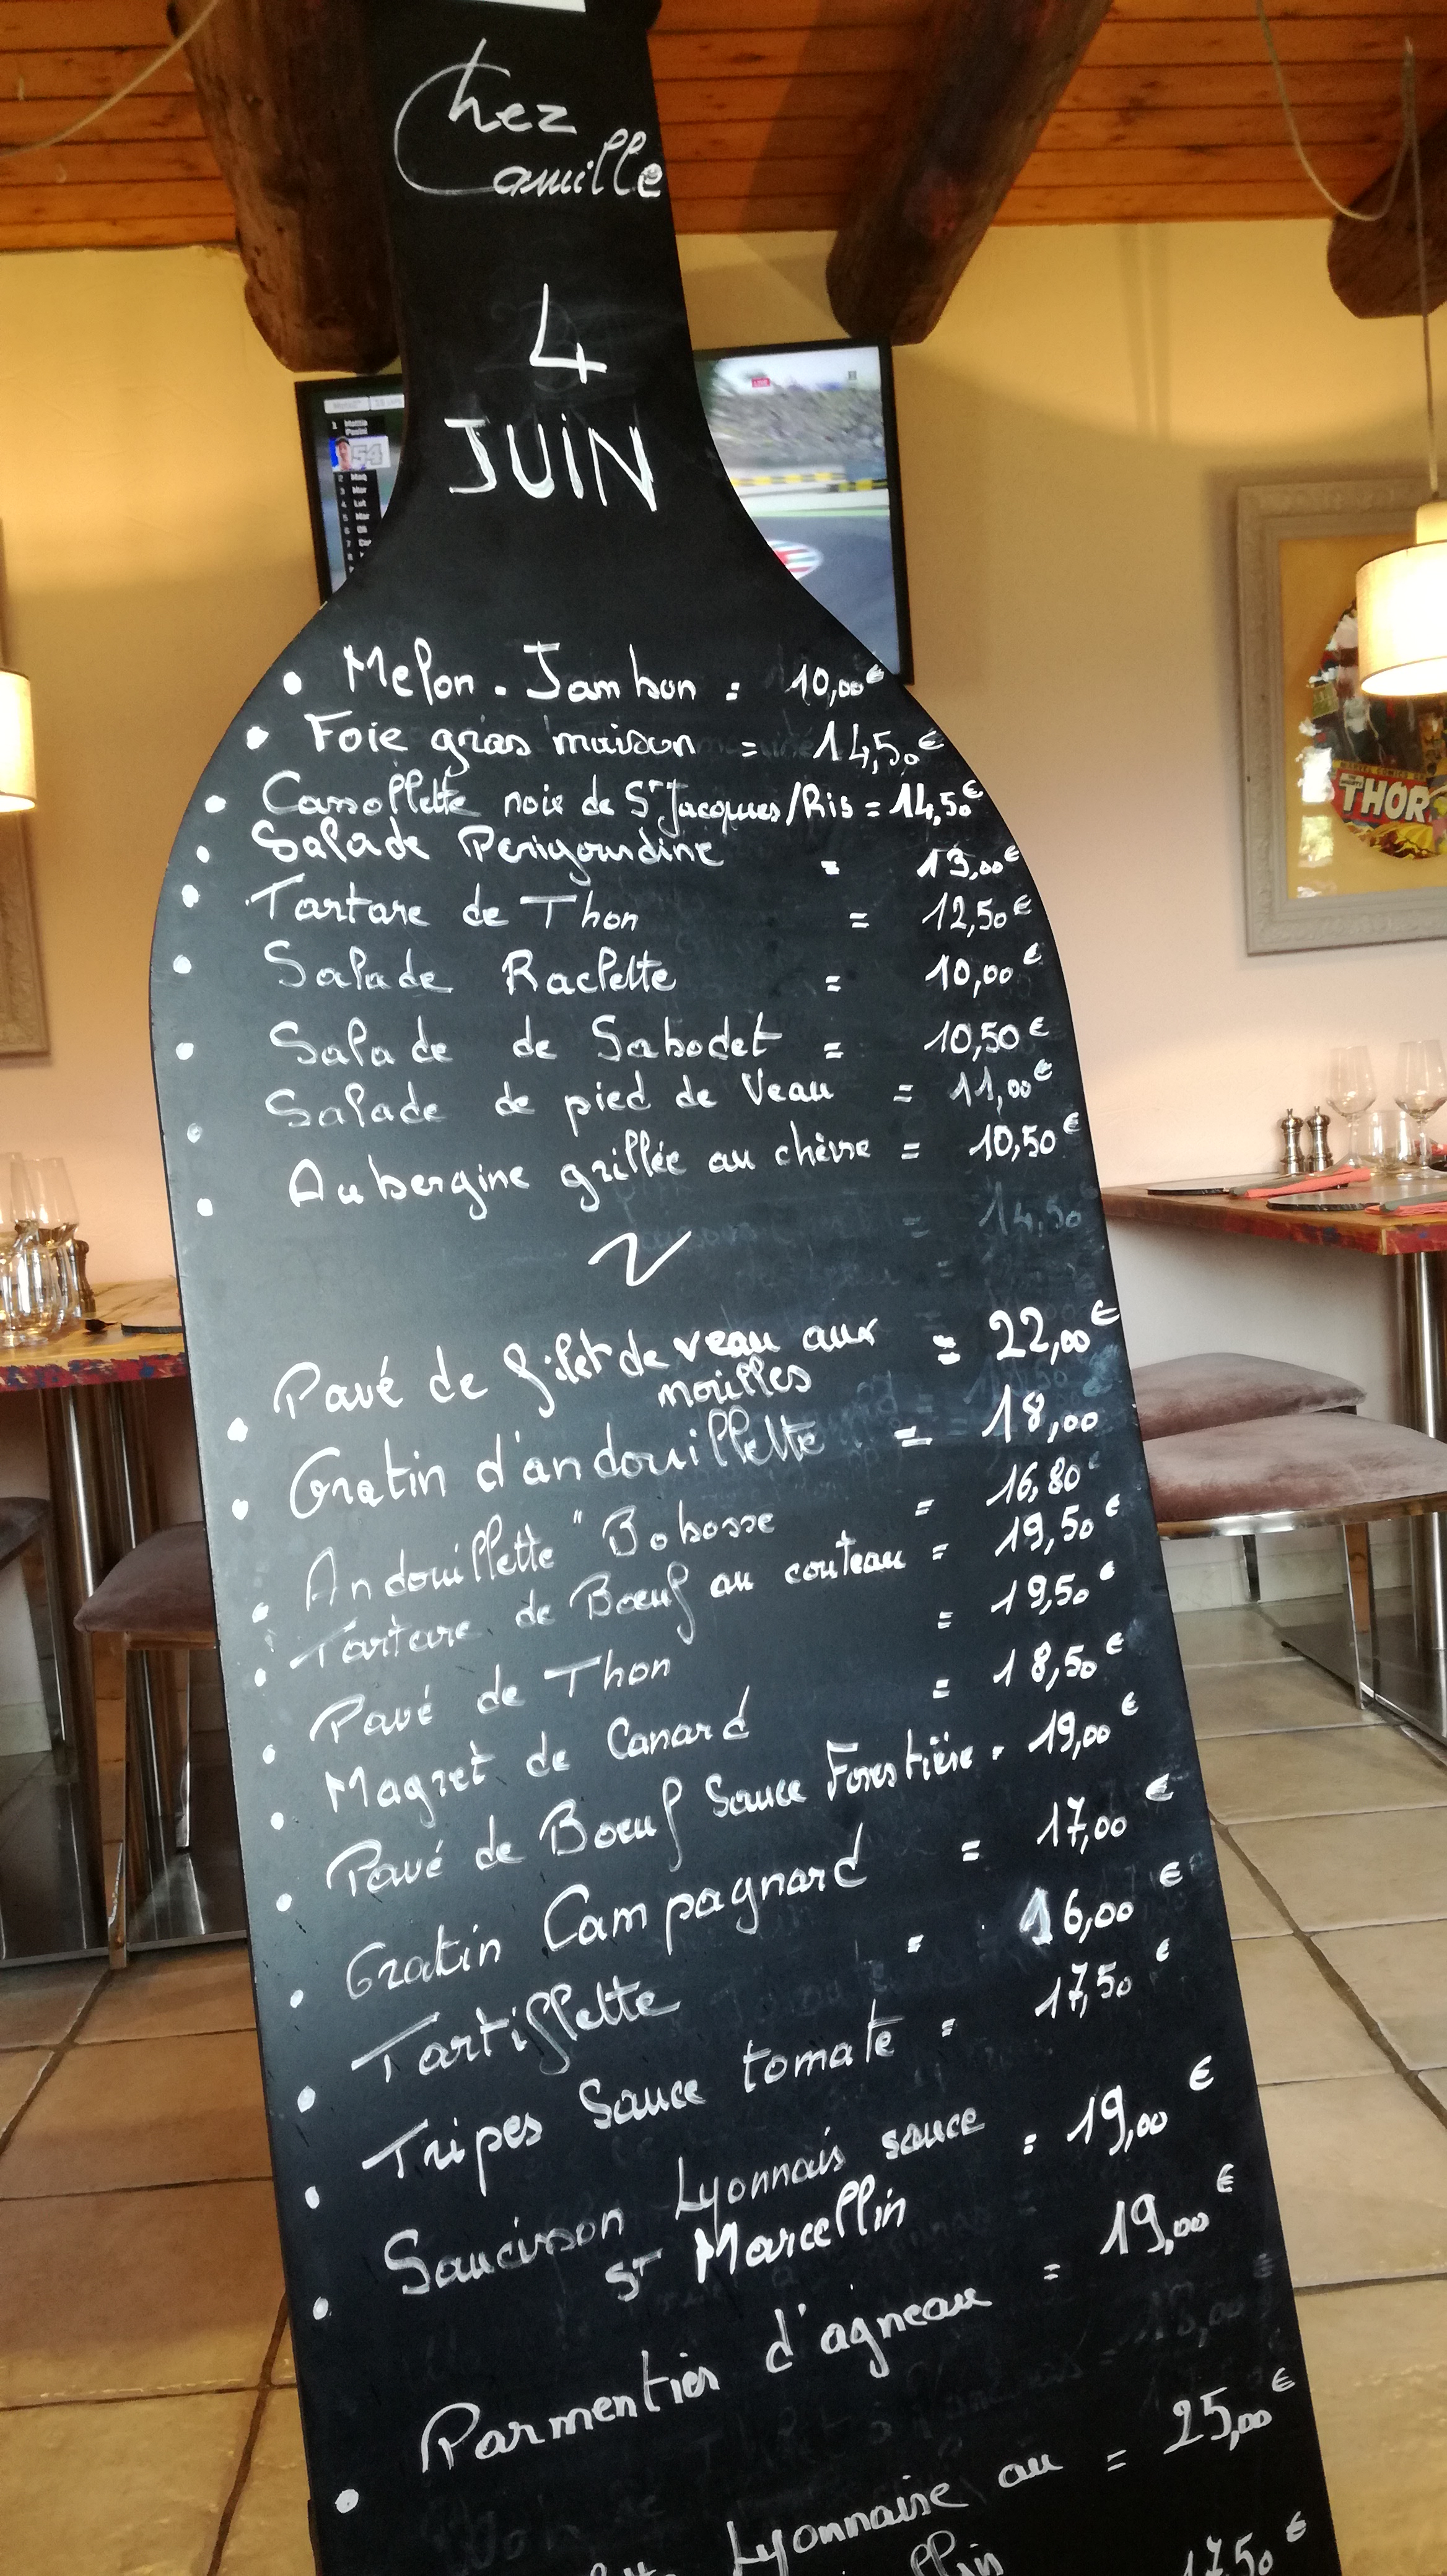 Chez
Camille
4
JUIN
• Melon - Jambon = 10,00€
• Foie gras maison = 14,50€
• Cassollette noix de St Jacques/Ris = 14,50€
• Salade Perigourdine = 13,00€
• Tartare de Thon = 12,50€
• Salade Raclette = 10,00€
• Salade de Sabodet = 10,50€
• Salade de pied de Veau = 11,00€
• Aubergine grillée au chèvre = 10,50€
• Pavé de filet de veau aux = 22,00€
morilles
• Gratin d'andouillette = 18,00
• Andouillette "Bobosse = 16,80€
• Tartare de Boeuf au couteau = 19,50€
• Pavé de Thon = 19,50€
• Magret de Canard = 18,50€
• Pavé de Boeuf Sauce Forestière = 19,00€
• Gratin Campagnard = 17,00€
• Tartiflette = 16,00€
• Tripes Sauce tomate = 17,50€
• Saucisson Lyonnais sauce = 19,00€
St Marcellin
• Parmentier d'agneau = 19,00€
Lyonnaise au = 25,00€
17,50€
54
THOR